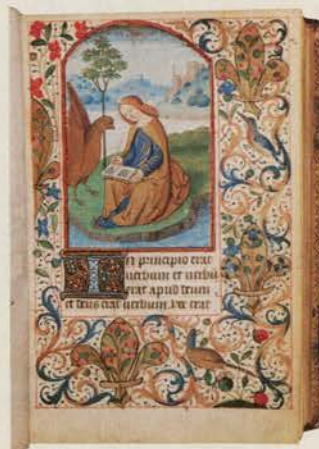 In principio erat
uerbum et uerbu
erat apud deum
et deus erat uerbum. hoc erat